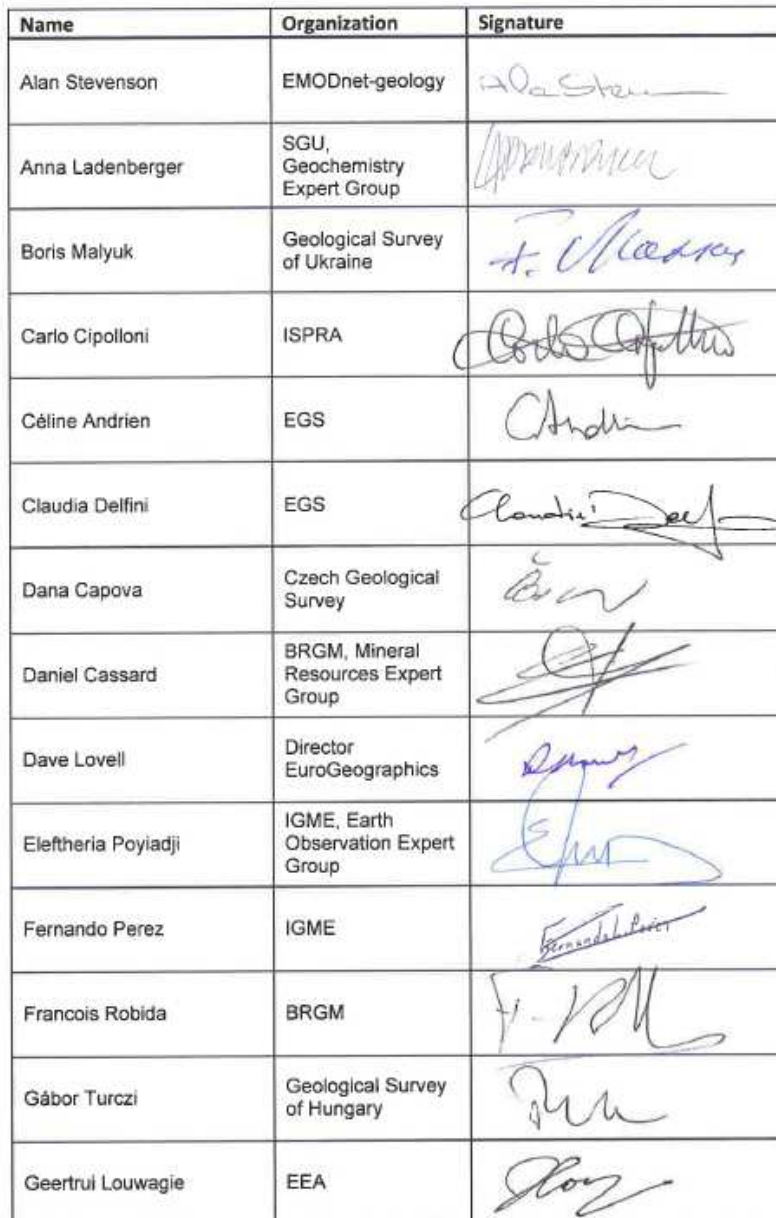 Name Organization Signature
Alan Stevenson EMODnet-geology
Anna Ladenberger SGU,
Geochemistry
Expert Group
Boris Malyuk Geological Survey
of Ukraine
Carlo Cipolloni ISPRA
Céline Andrien EGS
Claudia Delfini EGS
Dana Capova Czech Geological
Survey
Daniel Cassard BRGM, Mineral
Resources Expert
Group
Dave Lovell Director
EuroGeographics
Eleftheria Poyiadji IGME, Earth
Observation Expert
Group
Fernando Perez IGME
Francois Robida BRGM
Gábor Turczi Geological Survey
of Hungary
Geertrui Louwagie EEA